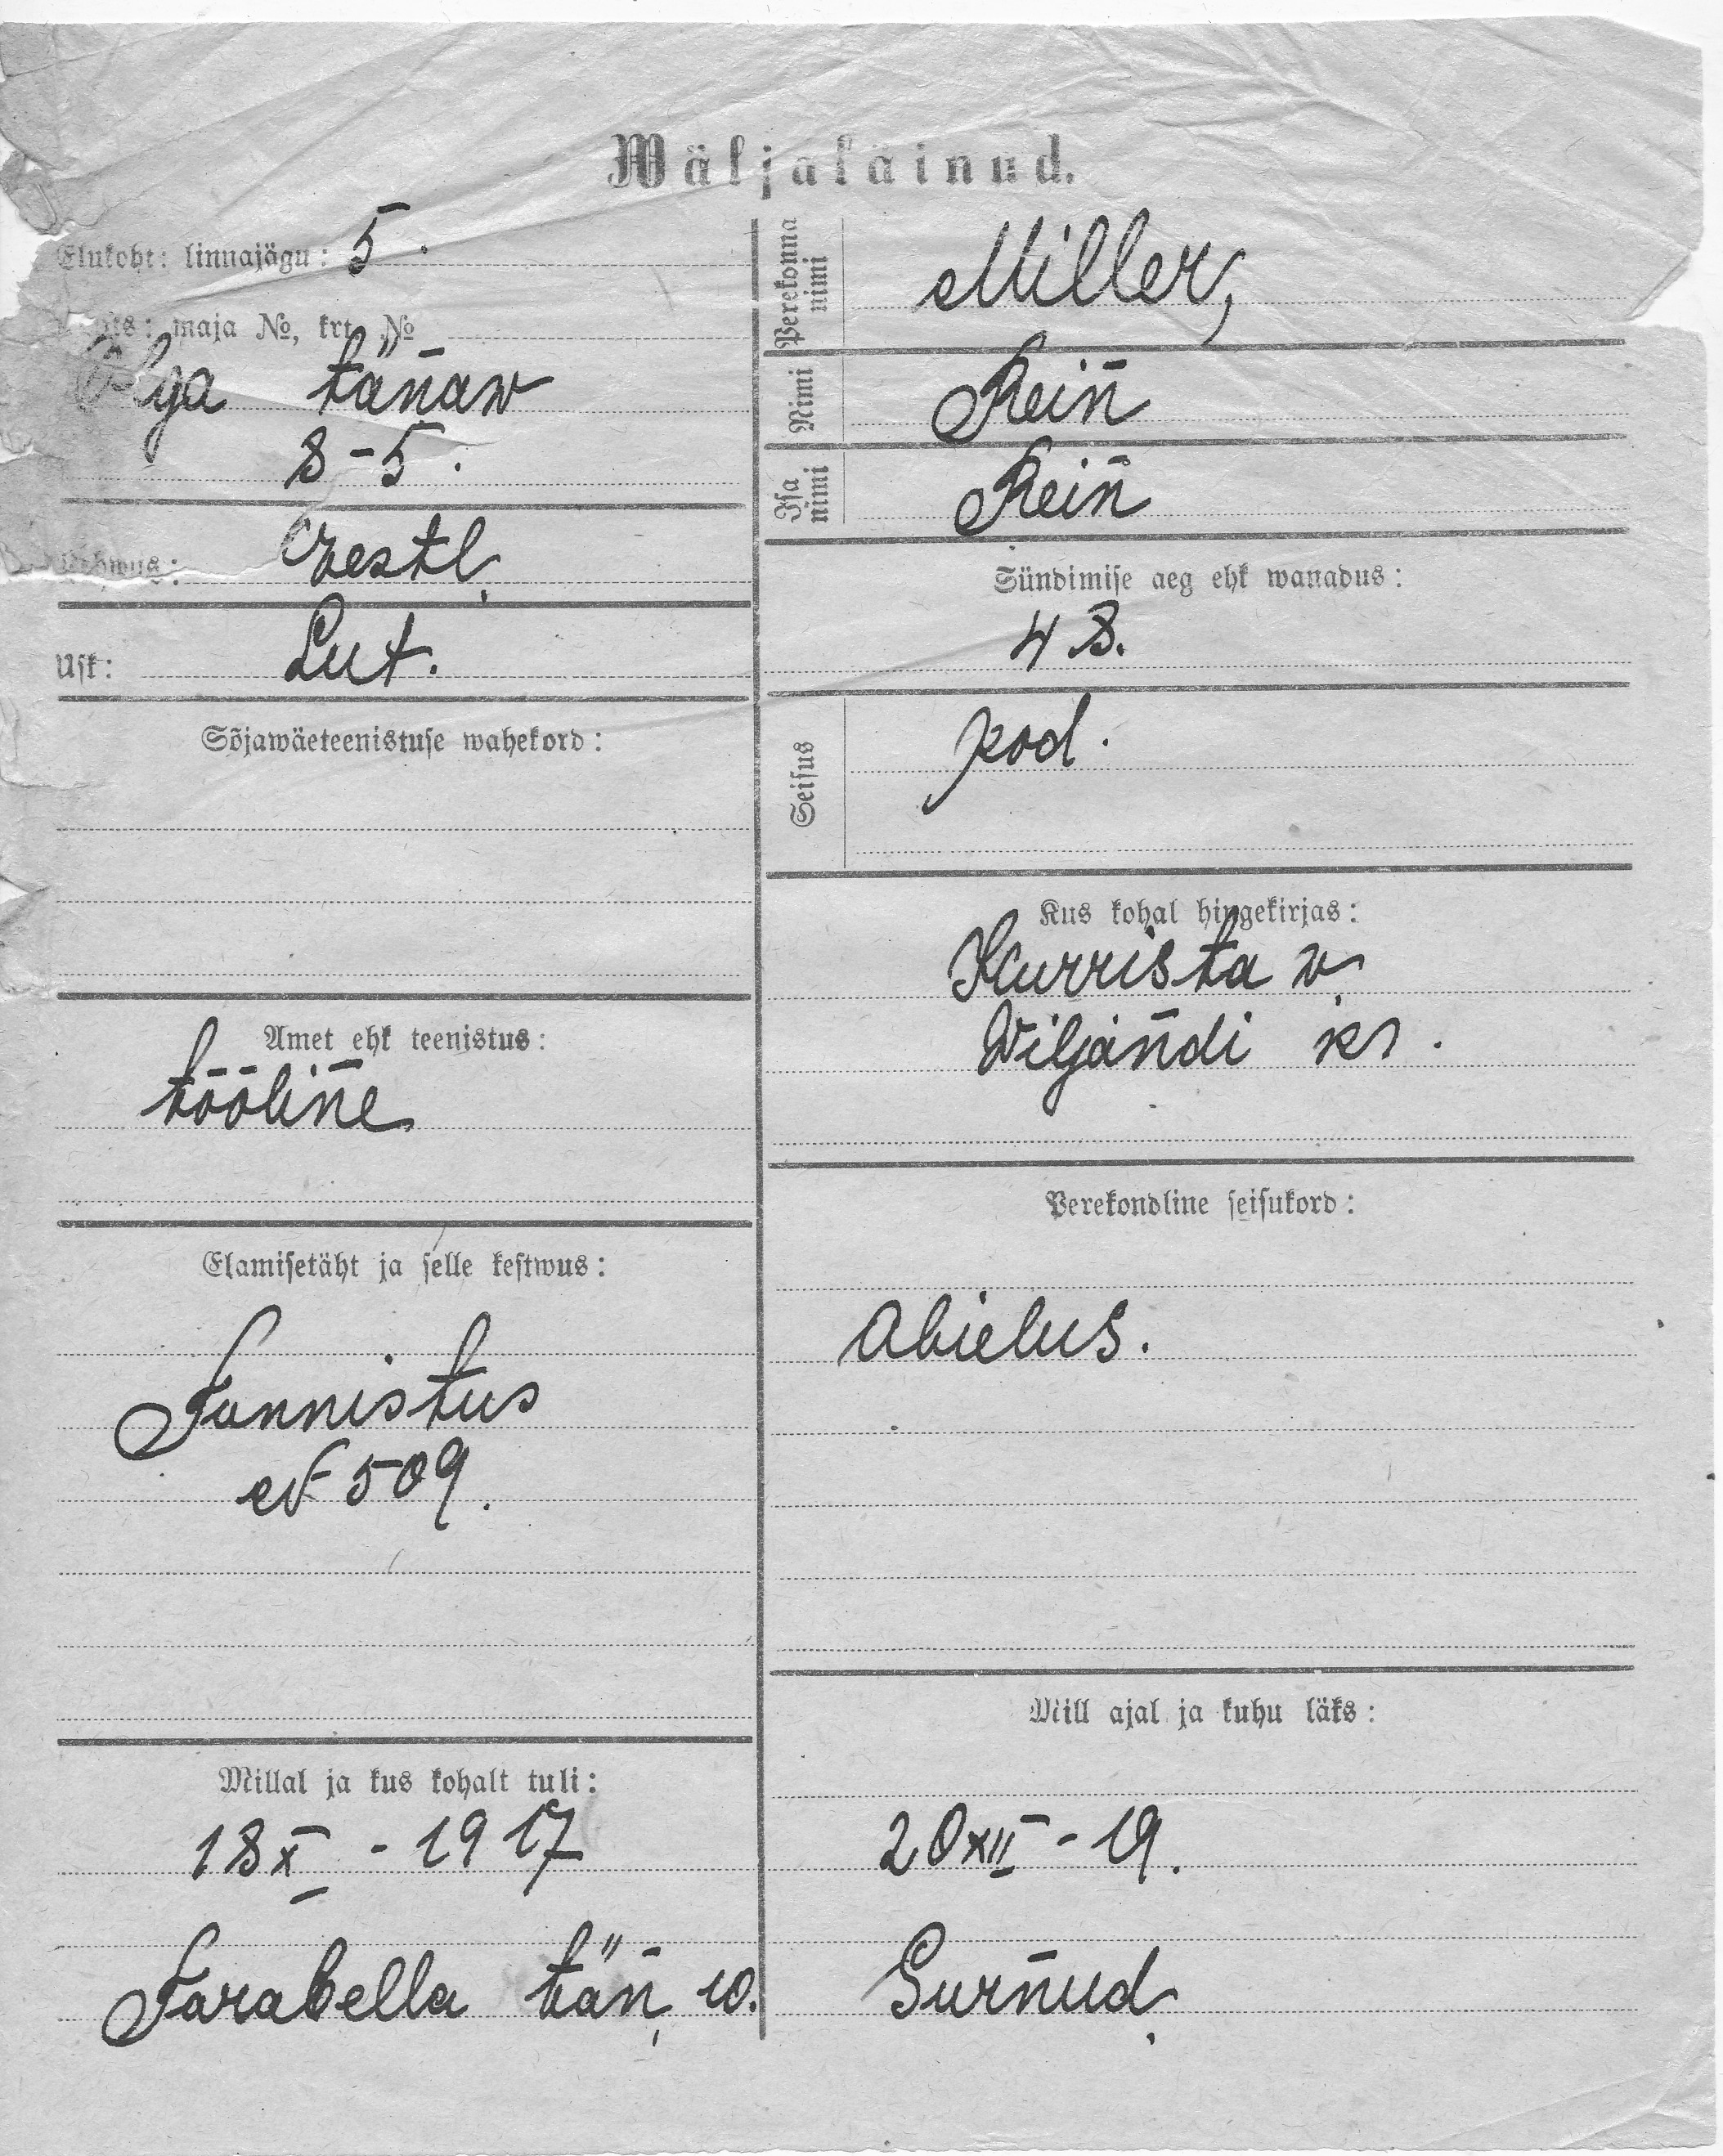 Wäljaläinud.
Elukoht: linnajägu: 5.
maja №, krt. №
Olga tänaw
8-5.
Eestl.
Usk: Lut.
Sõjawäeteenistuse wahekord:
Amet ehk teenistus:
tööline
Elamisetäht ja selle kestwus:
Tunnistus
№ 509.
Millal ja kus kohalt tuli:
18 X - 1917
Tarabella tän, 10.
Perekonna nimi
Miller,
Nimi
Rein
Isa nimi
Rein
Sündimise aeg ehk wanadus:
48.
Seisus
kod.
Kus kohal hingekirjas:
Kurrista w.
Wiljandi kr.
Perekondline seisukord:
Abielus.
Mill ajal ja kuhu läks:
20 XII - 19.
Surnud.